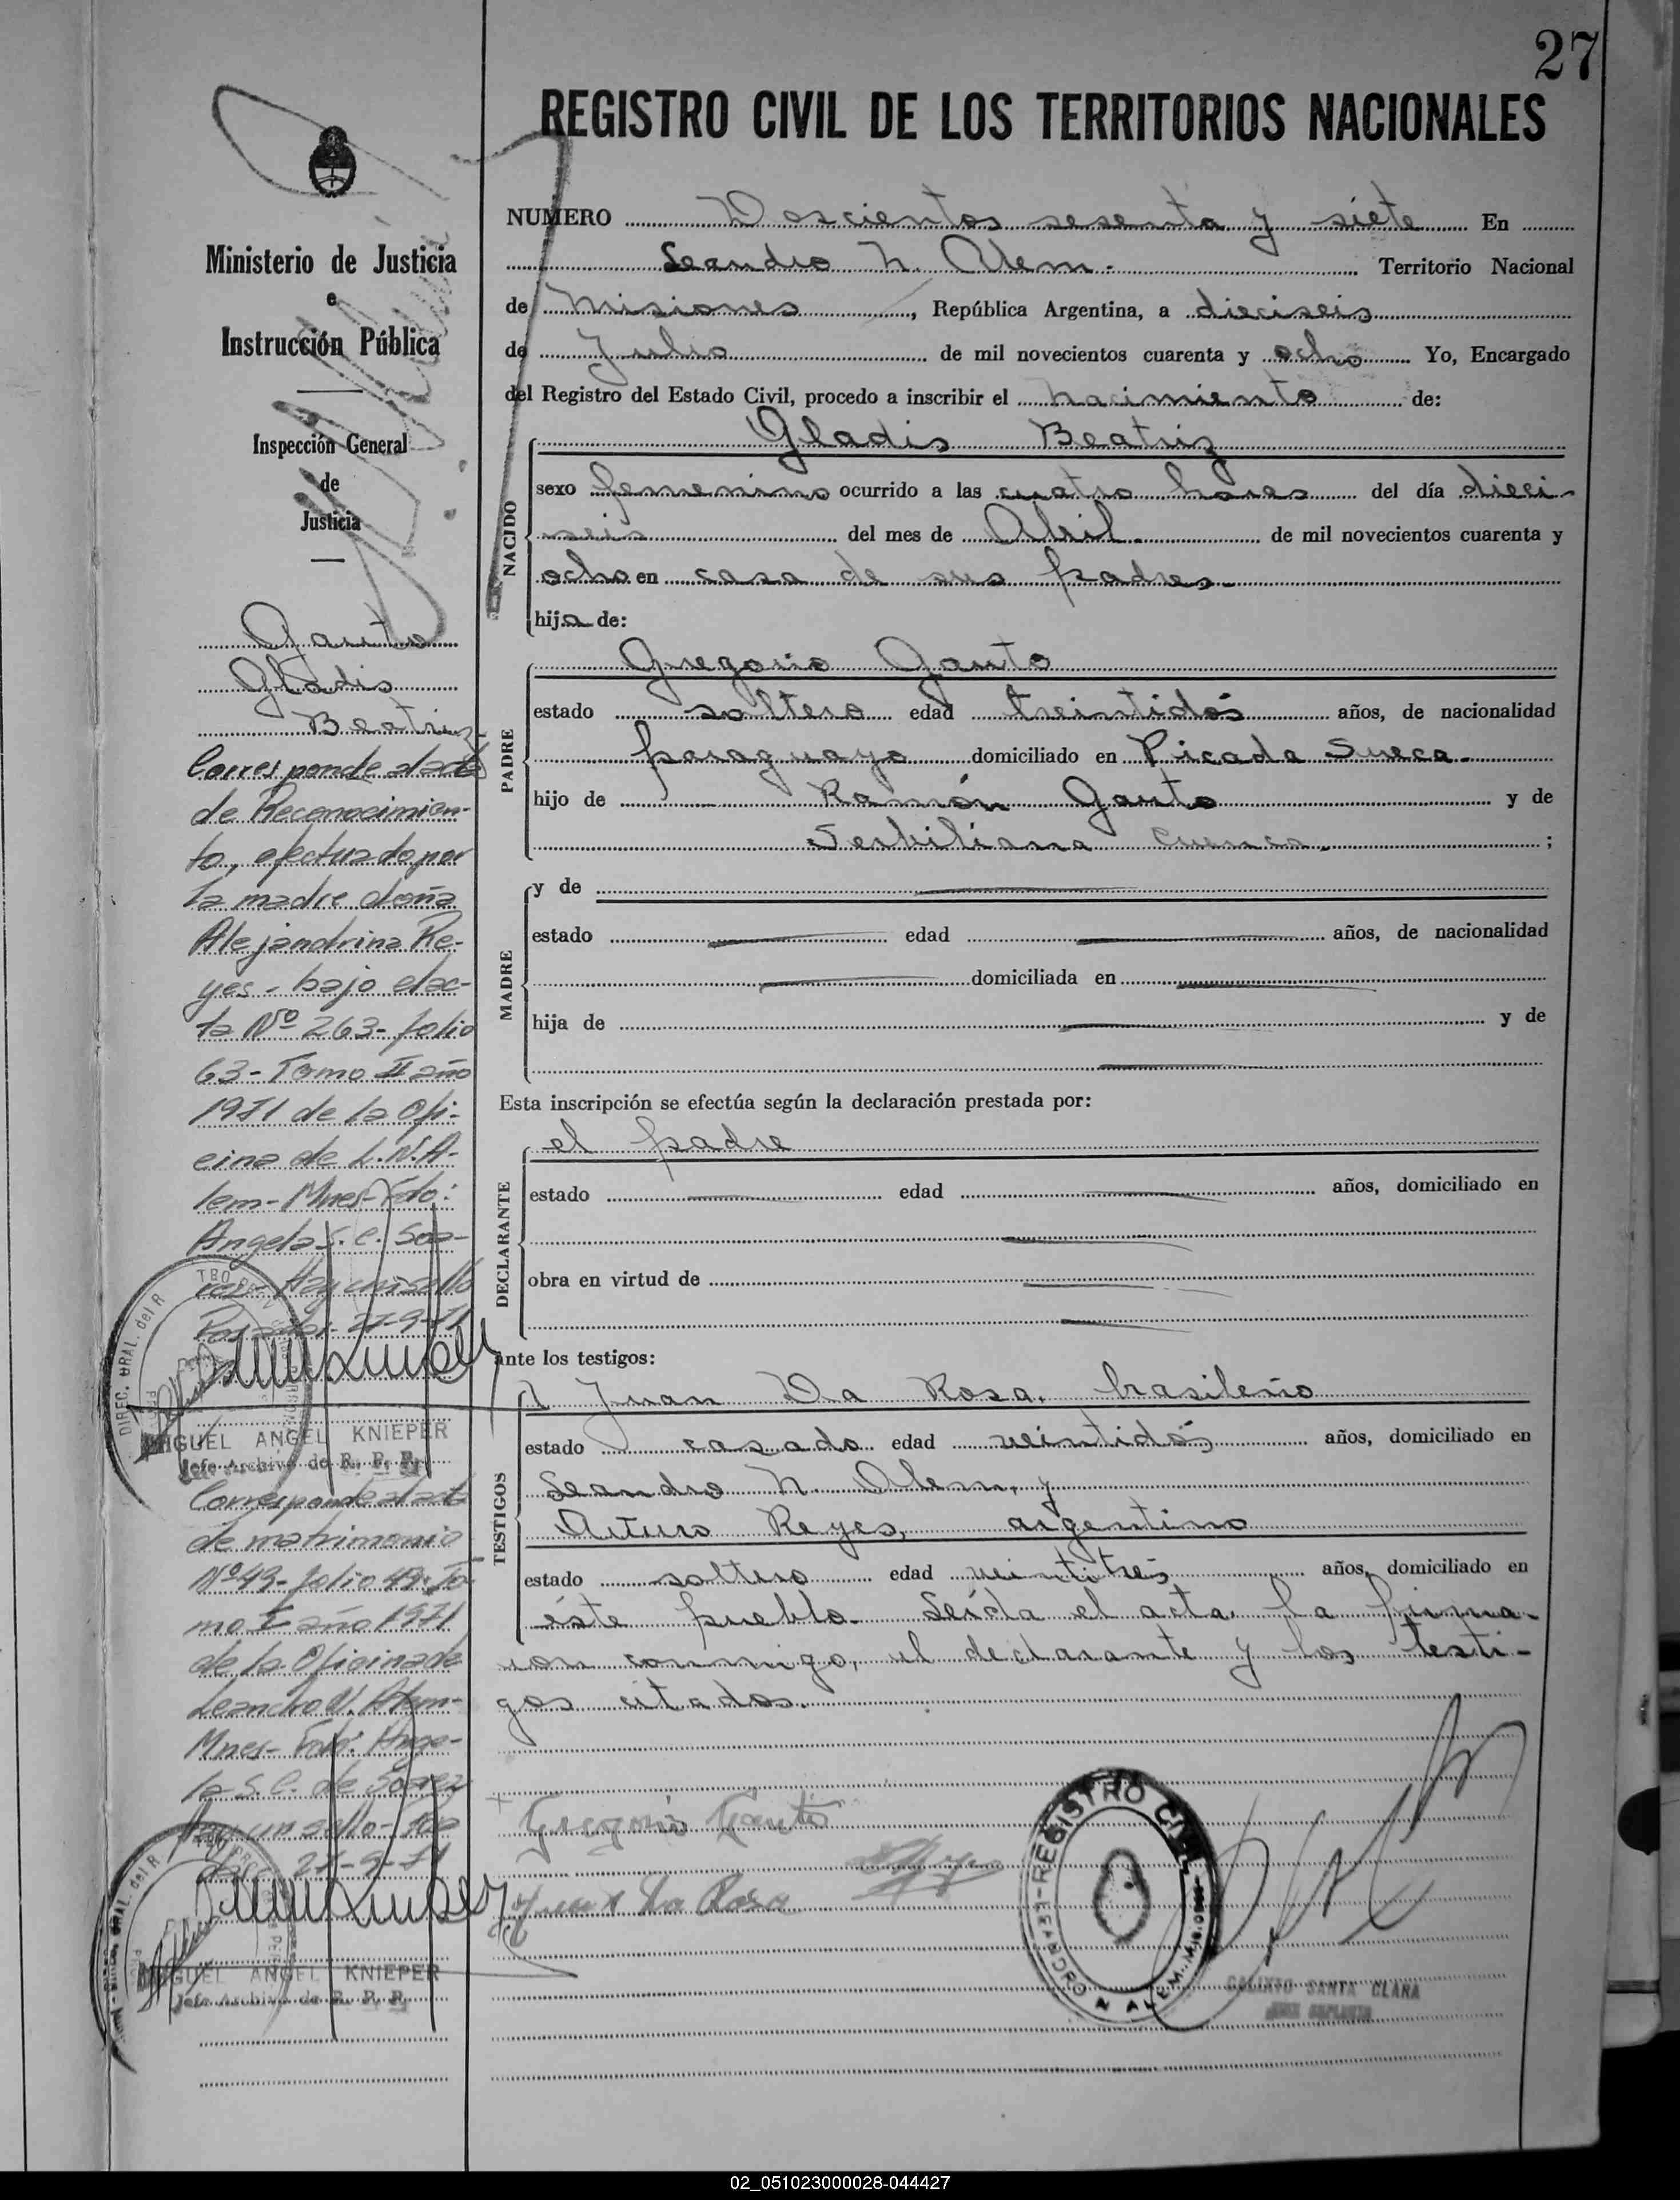 27
REGISTRO CIVIL DE LOS TERRITORIOS NACIONALES
Ministerio de Justicia
e
Instrucción Pública
Inspección General
de
Justicia
Gauto
Gladis
Beatriz
Corresponde al acta
de Reconocimien-
to, efectuado por
la madre doña
Alejandrina Re-
yes - bajo el ac-
ta Nº 263 - folio
63 - Tomo II año
1971 de la Ofi-
cina de L.N.A-
lem - Mnes - Fdo:
Angela S. C. Soa-
rez - Hay un sello
27-9-71
MIGUEL ANGEL KNIEPER
Jefe Archivo de R. P. P.
Corresponde al acta
de matrimonio
Nº 49 - folio 49 - To-
mo I año 1971
de la Oficina de
Leandro N. Alem -
Mnes - Fdo: Ange-
la S. C. de Soarez
Hay un sello - Pos
27-9-71
MIGUEL ANGEL KNIEPER
Jefe Archivo de R. P. P.
NUMERO Doscientos sesenta y siete En
Leandro N. Alem. Territorio Nacional
de Misiones, República Argentina, a dieciseis
de Julio de mil novecientos cuarenta y ocho Yo, Encargado
del Registro del Estado Civil, procedo a inscribir el nacimiento de:
NACIDO
Gladis Beatriz
sexo femenino ocurrido a las cuatro horas del día dieci-
seis del mes de Abril. de mil novecientos cuarenta y
ocho en casa de sus padres.
hija de:
PADRE
Gregorio Gauto
estado soltero edad treintidós años, de nacionalidad
paraguaya domiciliado en Picada Sueca.
hijo de Ramón Gauto y de
Serbiliana Cuenca. ;
MADRE
y de
estado edad años, de nacionalidad
domiciliada en
hija de y de
Esta inscripción se efectúa según la declaración prestada por:
DECLARANTE
el padre
estado edad años, domiciliado en
obra en virtud de
ante los testigos:
TESTIGOS
Juan Da Rosa, brasileño
estado casado edad veintidós años, domiciliado en
Leandro N. Alem, y
Arturo Reyes, argentino
estado soltero edad veintitres años, domiciliado en
éste pueblo. Leída el acta, la firma-
ron conmigo, el declarante y los testi-
gos citados.
Gregorio Gauto
Juan Da Rosa
REGISTRO CIVIL
LEANDRO N. ALEM
CALIXTO SANTA CLARA
JUEZ SUPLENTE
02_051023000028-044427